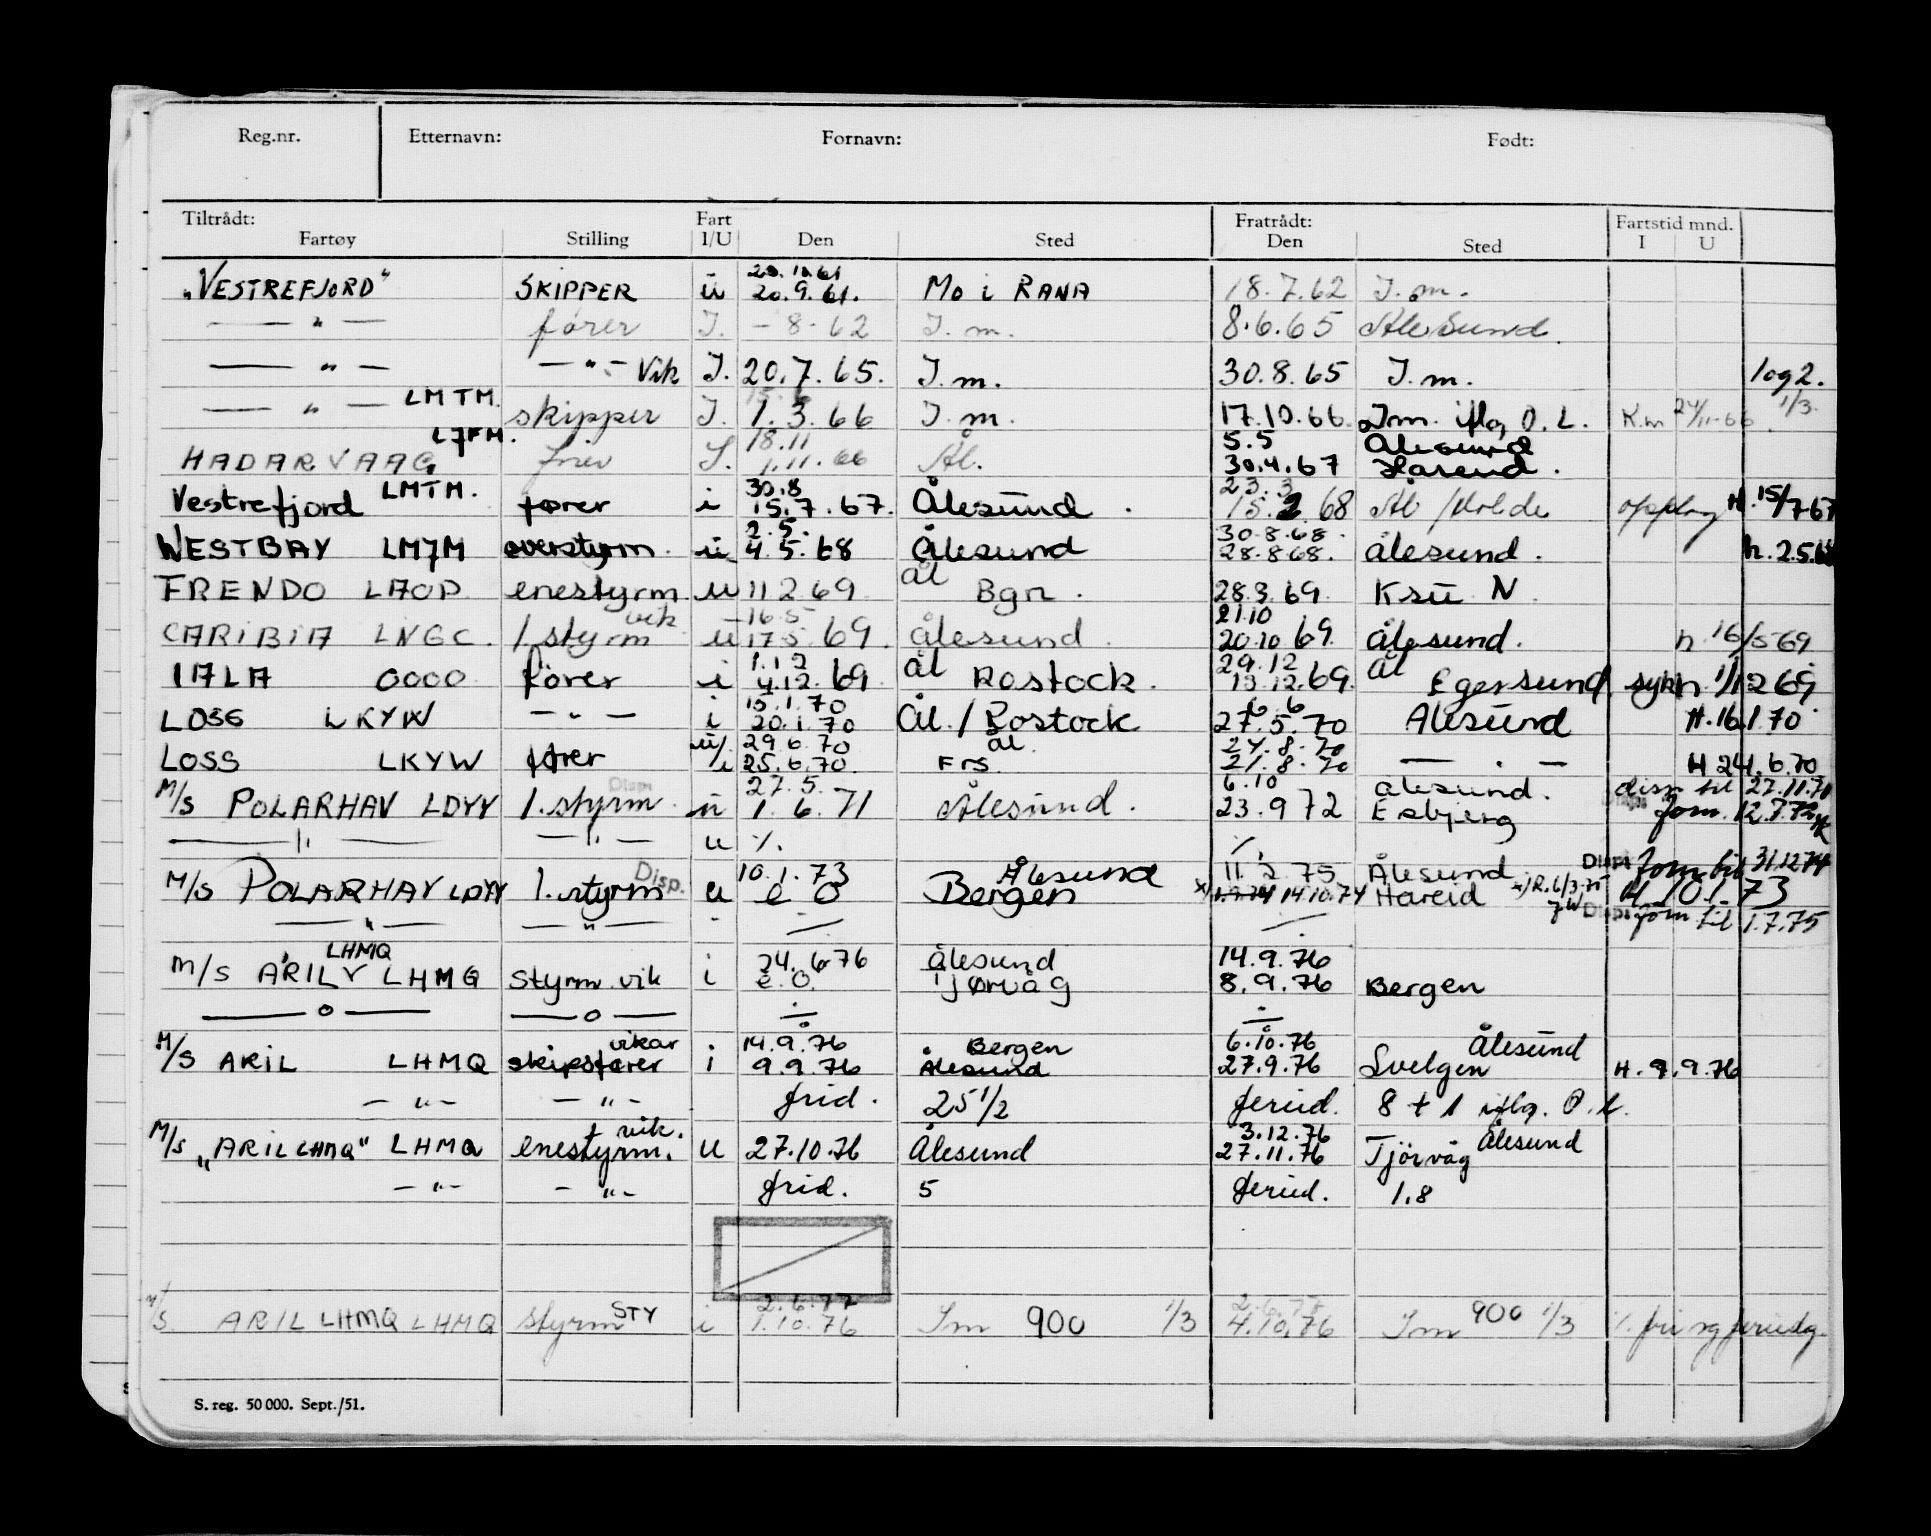 Reg.nr. Etternavn: Fornavn: Født:
Tiltrådt: Fart Fratrådt: Fartstid mnd.
Fartøy Stilling I/U Den Sted Den Sted I U
20.10.61
„VESTREFJORD" SKIPPER ü 20.9.61. MO i RANA 18.7.62 I.m.
— " — fører I. - 8 - 62 I.m. 8.6.65 Ålesund.
— " — — " — Vik I. 20.7.65. I.m. 30.8.65 I.m. log 2.
— " — LMTM. skipper I. 1.3.66 I.m. 17.10.66. I.m. iflg O.L. K.m 24/11-66. 1/3.
LJFM. 18.11 5.5 Ålesund
HADARVAAG I. 1.11.66 Ål. 30.4.67 Hareid.
LMTM. 30.8 23.3
Vestrefjord fører i 15.7.67. Ålesund. 15.2 68 Ål / Molde opplag H. 15/7-67
2.5. 30.8.68.
WESTBAY LMJM overstyrm. ü 4.5.68 Ålesund 28.8.68. Ålesund. h. 2.5.68
FRENDO LAOP enestyrm. u 11 2.69 Ål Bgn. 28.3.69. Ksü N.
vik 16.5 21.10
CARiBiA LNGC. 1 styrm u 17.5.69. Ålesund. 20.10 69. Ålesund. h. 16/5-69
1.12 29.12
IALA OOOO fører i 4.12.69 Ål Rostock. 13.12.69. Ål Egersund sykh. 1/12 69.
15.1.70 6.6
LOSS LKYW — " — i 20.1.70 Ål. / Rostock 27.5.70 Ålesund H. 16.1.70
29.6.70 Ål. 24.8.70
LOSS LKYW fører ü/i 25.6.70. Frs. 21.8.70 — " — H 24.6.70
Disp 27.5. 6.10 Ålesund. disp til 27.11.71
M/S POLARHAV LDYY 1. styrm. ü 1.6.71 Ålesund. 23.9 72 Esbjerg Disp. fom. 12.7.72
— " — — " — u %. %.
Disp. 10.1.73 Ålesund 11.2.75 Ålesund Disp fom til 31.12 74
M/S POLARHAV LDYY 1. styrm u e O Bergen x) 14.10.74 Hareid x) R. 6/3-75 H 10 1 73
— " — — " — Disp. fom til 1.7.75
LHMQ 24.6.76 Ålesund 14.9.76
M/S ARILV LHMQ styrm. vik i e.O. Tjørvåg 8.9.76 Bergen
— o — — o — ÷ ÷
vikar 14.9.76 Bergen 6.10.76 Ålesund
M/S ARIL LHMQ skipsfører i 9.9.76 Ålesund 27.9.76 Svelgen H. 9.9.76
— " — — " — frid. 25 1/2 feried. 8 + 1 iflg. O.L.
vik. 3.12.76 Ålesund
M/S „ARIL LHMQ" LHMQ enestyrm. u 27.10.76 Ålesund 27.11.76 Tjörvåg
— " — — " — frid. 5 feried. 1.8
STY 2.6.77 2.6.77
M/S. ARIL LHMQ LHMQ styrm i 1.10.76 Im 900 1/3 4.10.76 Im 900 1/3 %. fri og feriedg.
S. reg. 50 000. Sept./51.